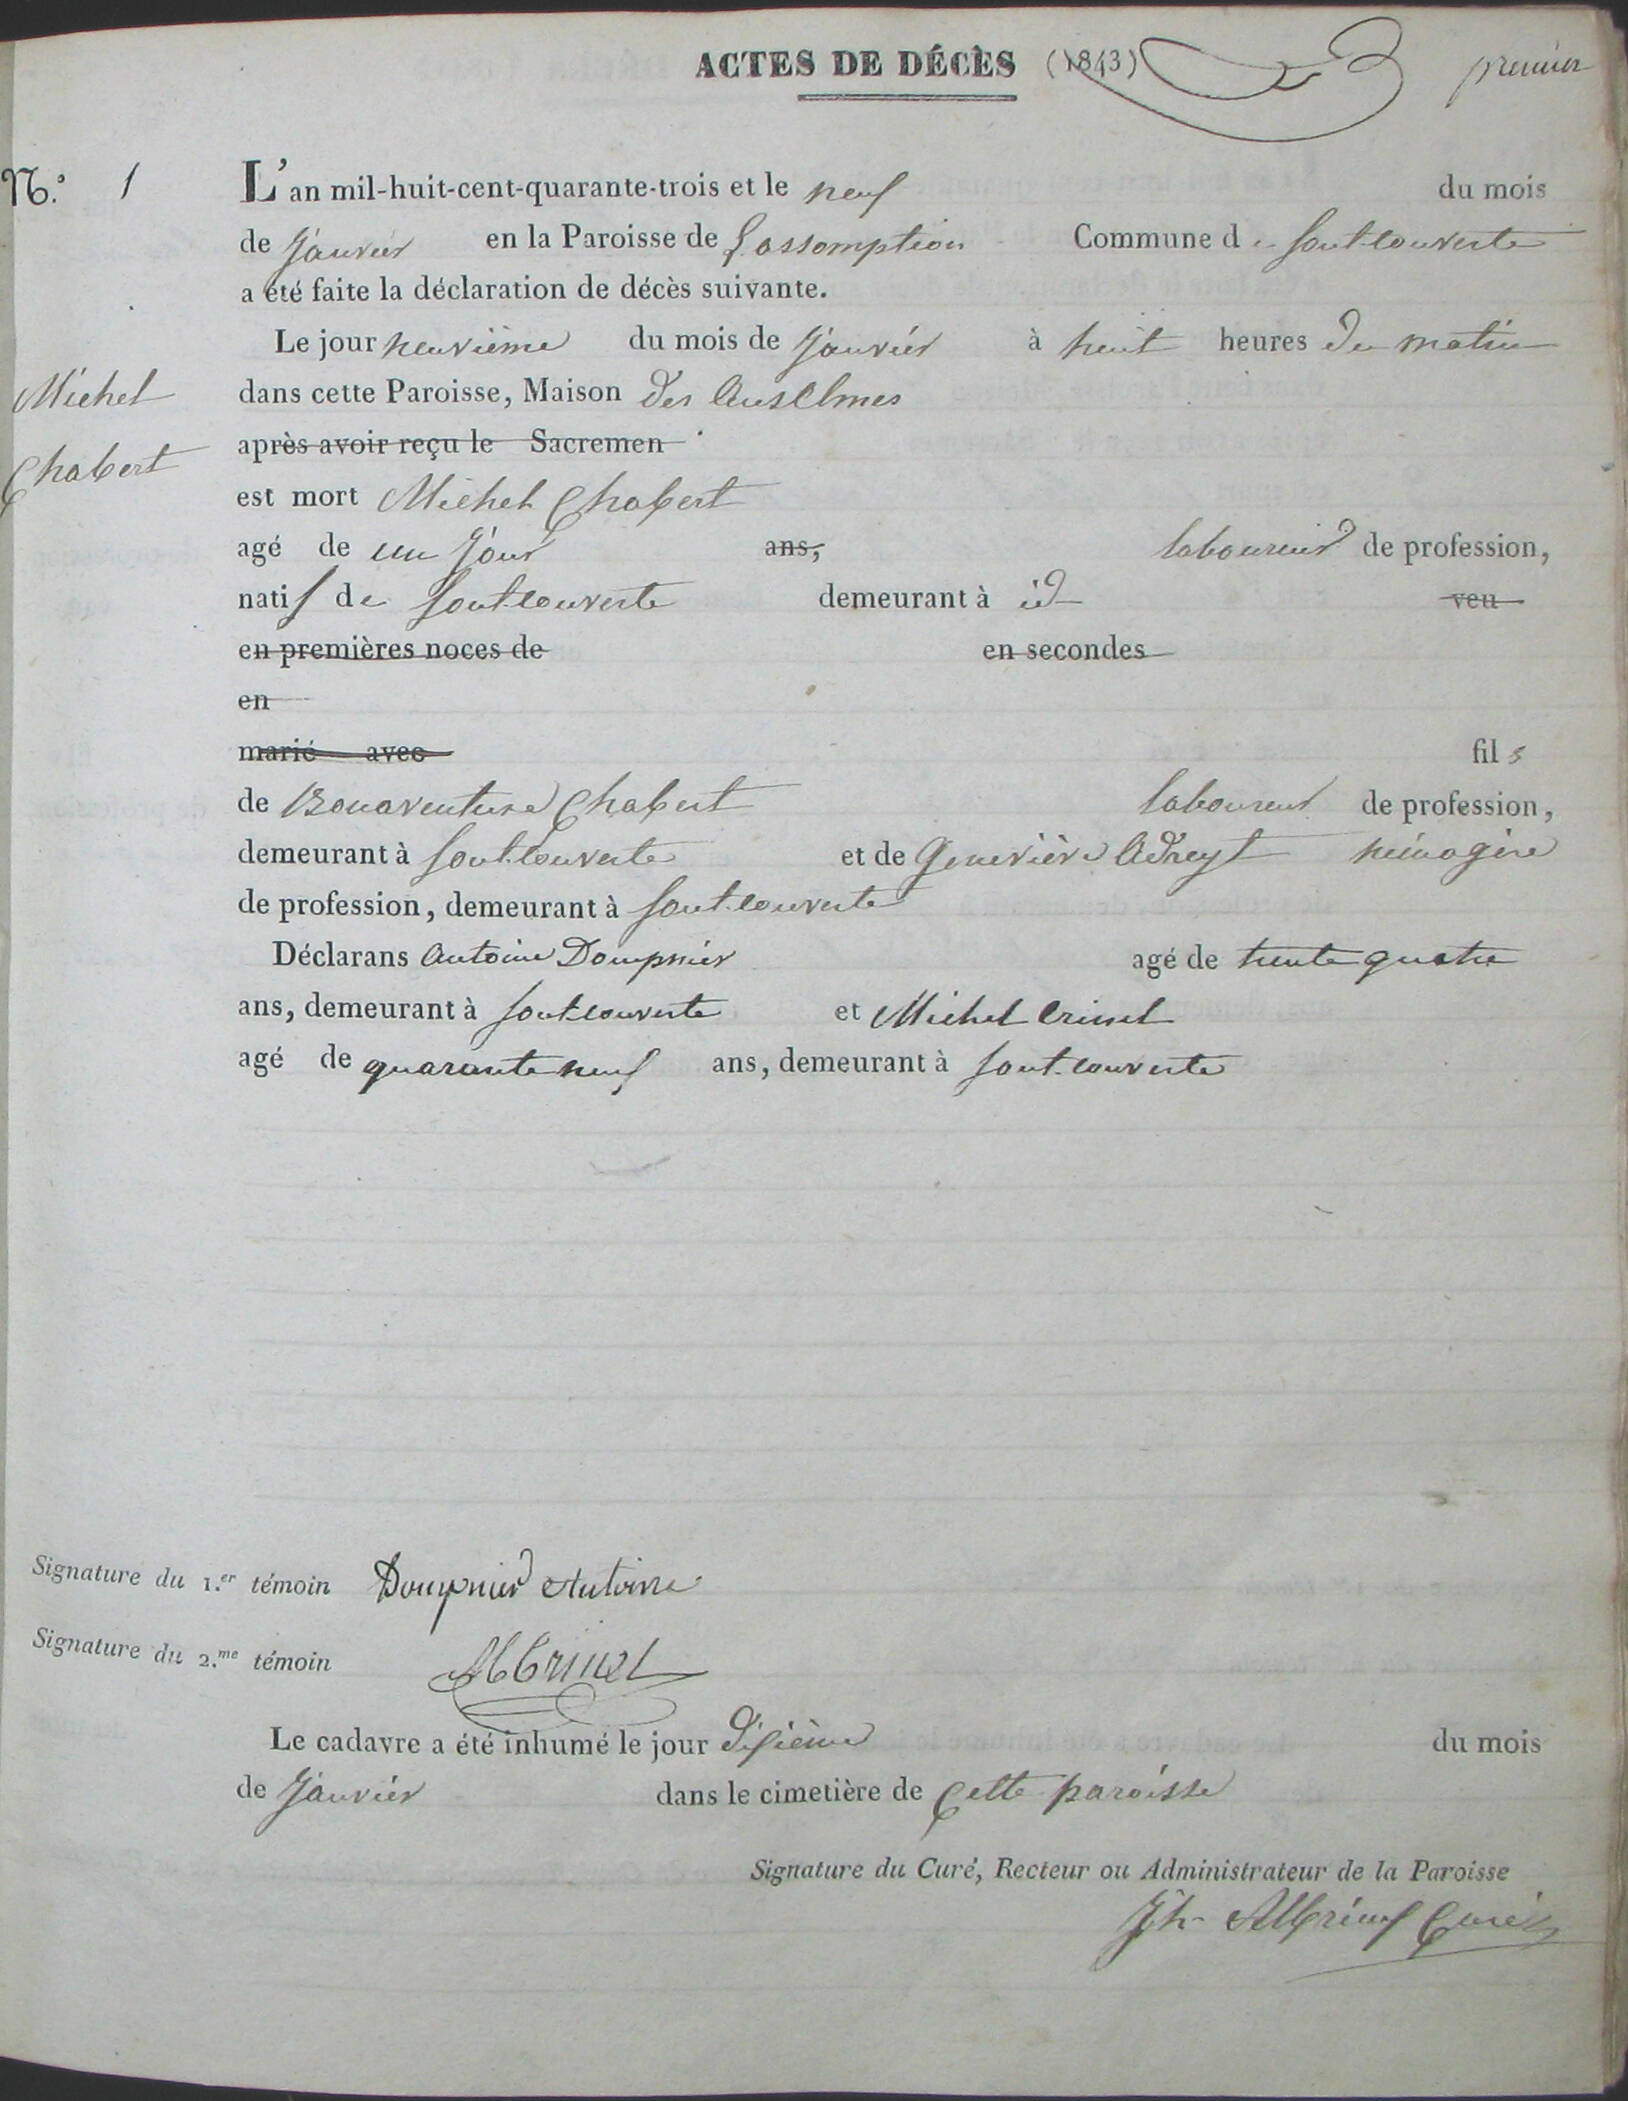 ACTES DE DÉCÈS (1843) premier
N.º 1 L'an mil-huit-cent-quarante-trois et le neuf du mois
de janvier en la Paroisse de L'assomption Commune de Font-couverte
a été faite la déclaration de décès suivante.
Le jour neuvième du mois de janvier à huit heures du matin
Michel dans cette Paroisse, Maison des Anselmes
après avoir reçu le Sacremen
Chabert
est mort Michel Chabert
agé de un jour ans, laboureur de profession,
natif de font-couverte demeurant à id veu
en premières noces de en secondes
en
marié avec fils
de Bonaventure Chabert laboureur de profession,
demeurant à font-couverte et de Genevière Adreyt ménagère
de profession, demeurant à font-couverte
Déclarans Antoine Doupnier agé de trente quatre
ans, demeurant à font-couverte et Michel Crinel
agé de quarante neuf ans, demeurant à font-couverte
Signature du 1.er témoin Doupnier Antoine
Signature du 2.me témoin M Crinel
Le cadavre a été inhumé le jour dixième du mois
de janvier dans le cimetière de cette paroisse
Signature du Curé, Recteur ou Administrateur de la Paroisse
Jh. Curé